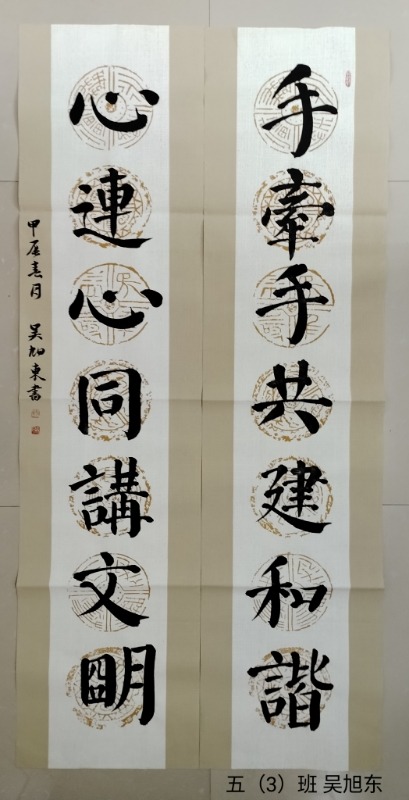 手牽手共建和諧
心連心同講文明
甲辰春月 吴旭東書
五（3）班 吴旭东